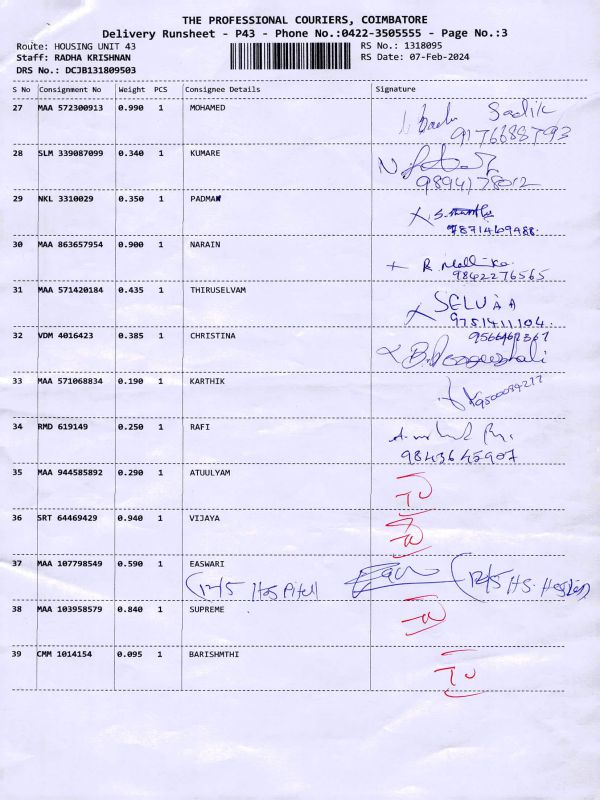 THE PROFESSIONAL COURIERS, COIMBATORE
Delivery Runsheet - P43 - Phone No.:0422-3505555 - Page No.:3
Route: HOUSING UNIT 43
RS No.: 1318095
Staff: RADHA KRISHNAN
RS Date: 07-Feb-2024
DRS No.: DCJB131809503
S No Consignment No Weight PCS Consignee Details Signature
27 MAA 572300913 0.990 1 MOHAMED Sadik
9176688793
28 SLM 339087099 0.340 1 KUMARE
9894178012
29 NKL 3310029 0.350 1 PADMA
7871469488.
30 MAA 863657954 0.900 1 NARAIN
9842276565
31 MAA 571420184 0.435 1 THIRUSELVAM
9751411104
32 VDM 4016423 0.385 1 CHRISTINA
33 MAA 571068834 0.190 1 KARTHIK
34 RMD 619149 0.250 1 RAFI
9843645907
35 MAA 944585892 0.290 1 ATUULYAM
36 SRT 64469429 0.940 1 VIJAYA
37 MAA 107798549 0.590 1 EASWARI
38 MAA 103958579 0.840 1 SUPREME
39 CMM 1014154 0.095 1 BARISHMTHI